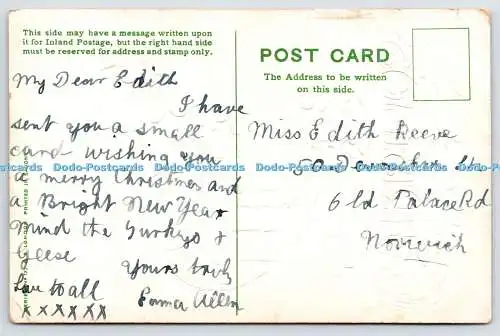 This side may have a message written upon
it for Inland Postage, but the right hand side
must be reserved for address and stamp only.
My Dear Edith
I have
sent you a small
card wishing you
a merry Christmas and
a Bright New Year
mind the Turkeys +
Geese
Yours truly
Love to all
Emma Allen
x x x x x x
POST CARD
The Address to be written
on this side.
Miss Edith Reeve
50 Devonshire St
Old Palace Rd
Norwich
Dodo-Postcards Dodo-Postcards Dodo-Postcards Dodo-Postcards